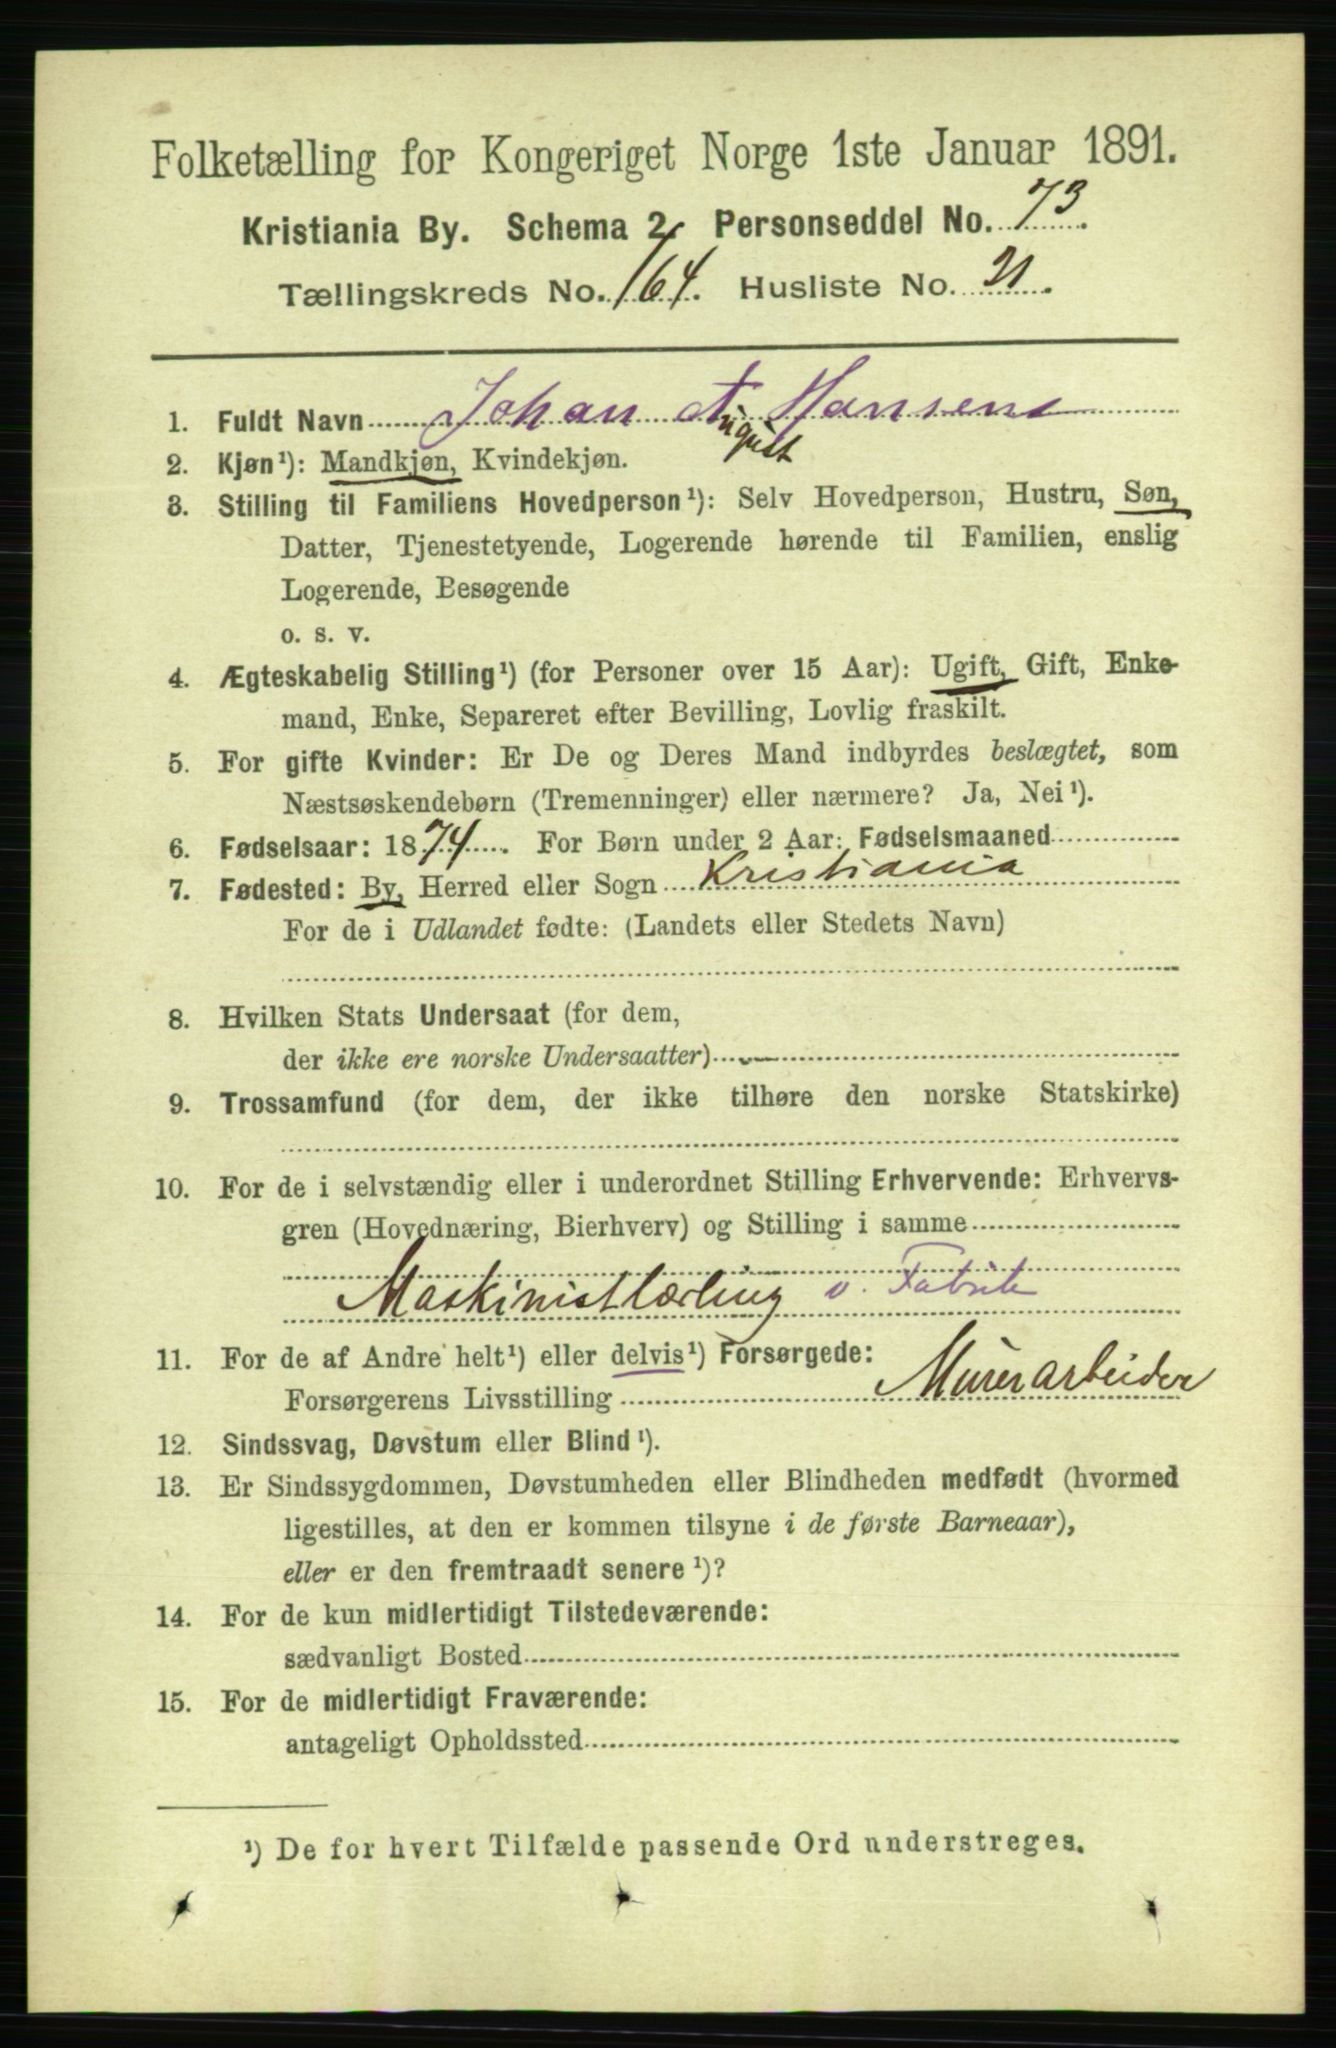 Folketælling for Kongeriget Norge 1ste Januar 1891.
Kristiania By. Schema 2. Personseddel No. 73.
Tællingskreds No. 164. Husliste No. 21.
1. Fuldt Navn Johan A Hansen
ugust
2. Kjøn¹): Mandkjøn, Kvindekjøn.
3. Stilling til Familiens Hovedperson¹): Selv Hovedperson, Hustru, Søn,
Datter, Tjenestetyende, Logerende hørende til Familien, enslig
Logerende, Besøgende
o. s. v.
4. Ægteskabelig Stilling¹) (for Personer over 15 Aar): Ugift, Gift, Enke-
mand, Enke, Separeret efter Bevilling, Lovlig fraskilt.
5. For gifte Kvinder: Er De og Deres Mand indbyrdes beslægtet, som
Næstsøskendebørn (Tremenninger) eller nærmere? Ja, Nei¹).
6. Fødselsaar: 1874. For Børn under 2 Aar: Fødselsmaaned
7. Fødested: By, Herred eller Sogn Kristiania
For de i Udlandet fødte: (Landets eller Stedets Navn)
8. Hvilken Stats Undersaat (for dem,
der ikke ere norske Undersaatter)
9. Trossamfund (for dem, der ikke tilhøre den norske Statskirke)
10. For de i selvstændig eller i underordnet Stilling Erhvervende: Erhvervs-
gren (Hovednæring, Bierhverv) og Stilling i samme
Maskinistlærling v. Fabrik
11. For de af Andre helt¹) eller delvis¹) Forsørgede:
Forsørgerens Livsstilling Murerarbeider
12. Sindssvag, Døvstum eller Blind¹).
13. Er Sindssygdommen, Døvstumheden eller Blindheden medfødt (hvormed
ligestilles, at den er kommen tilsyne i de første Barneaar),
eller er den fremtraadt senere¹)?
14. For de kun midlertidigt Tilstedeværende:
sædvanligt Bosted
15. For de midlertidigt Fraværende:
antageligt Opholdssted
¹) De for hvert Tilfælde passende Ord understreges.